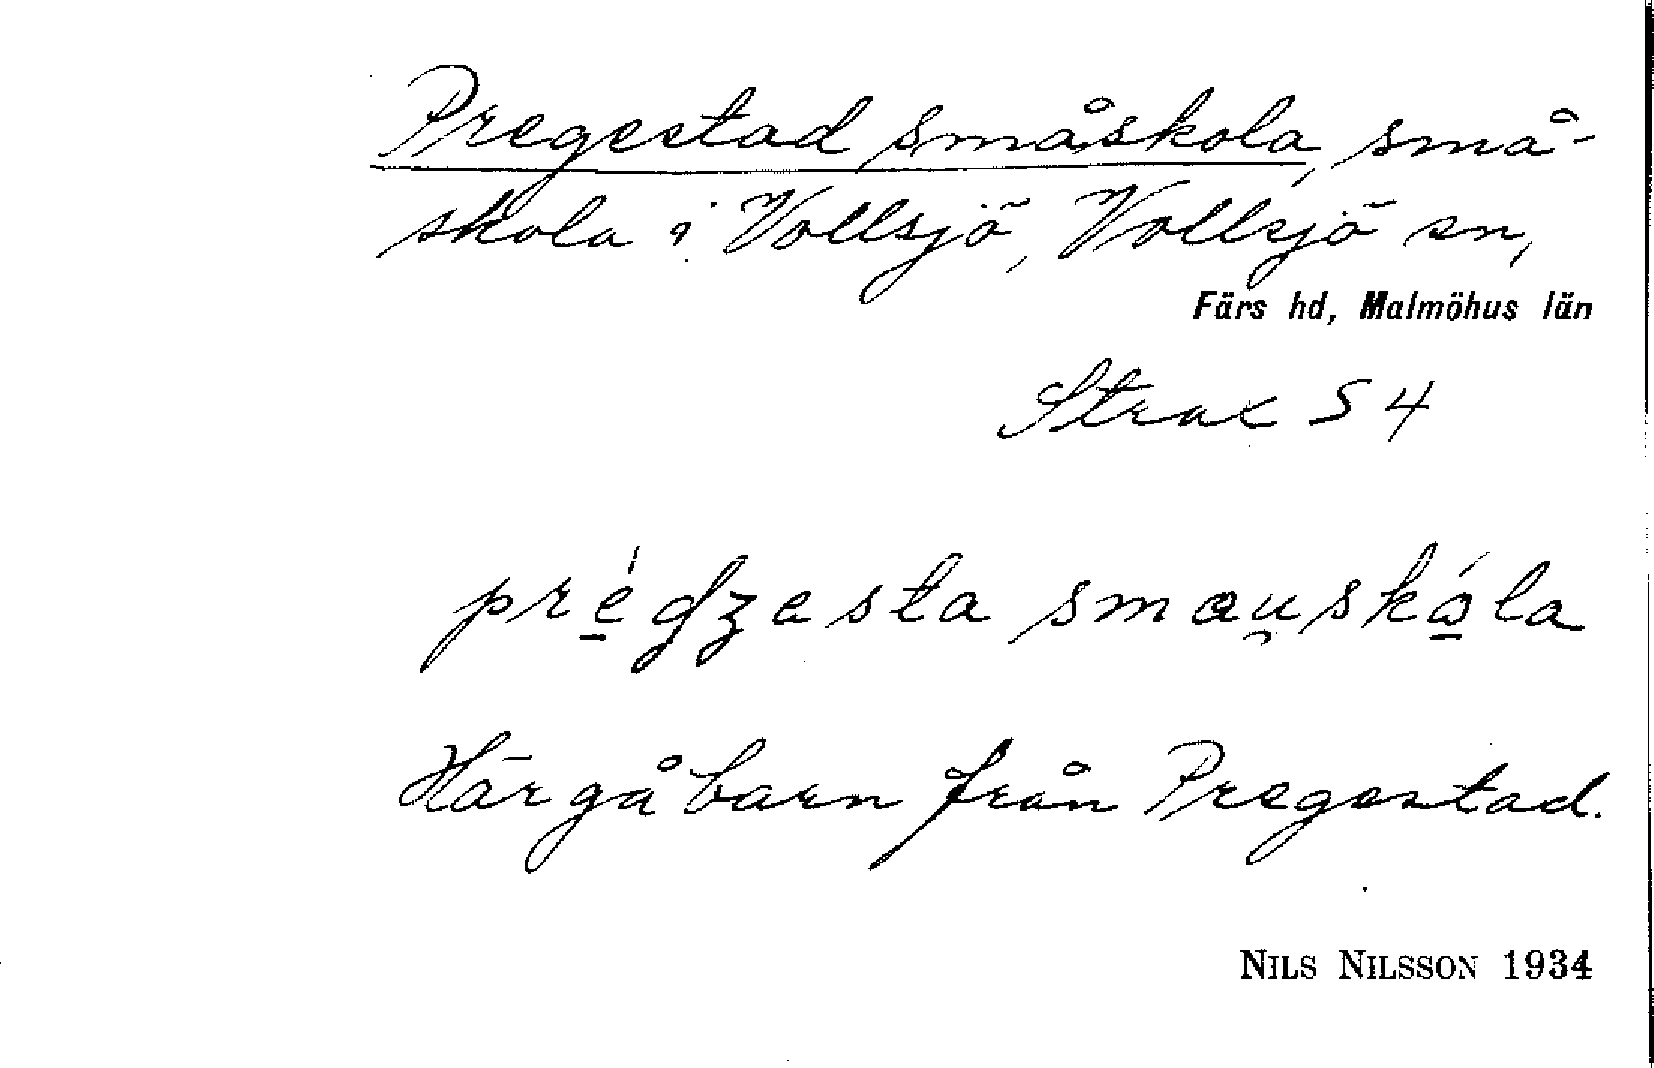 Pregestad småskola, små-
skola i Vollsjö, Vollsjö sn,
Färs hd, Malmöhus län
Strax S 4
pré̱dʒesta smau̯skó̱la
Här gå barn från Pregestad.
NILS NILSSON 1934